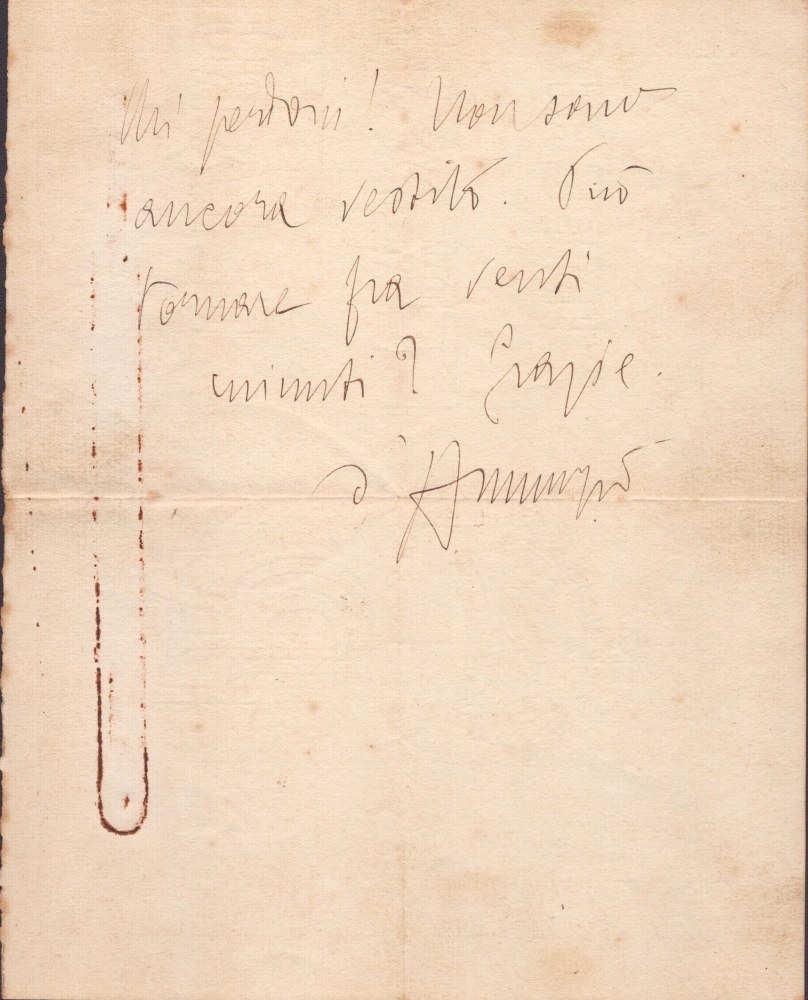 Mi perdoni! Non sono
ancora vestito. Può
tornare fra venti
minuti? Grazie.
d'Annunzio